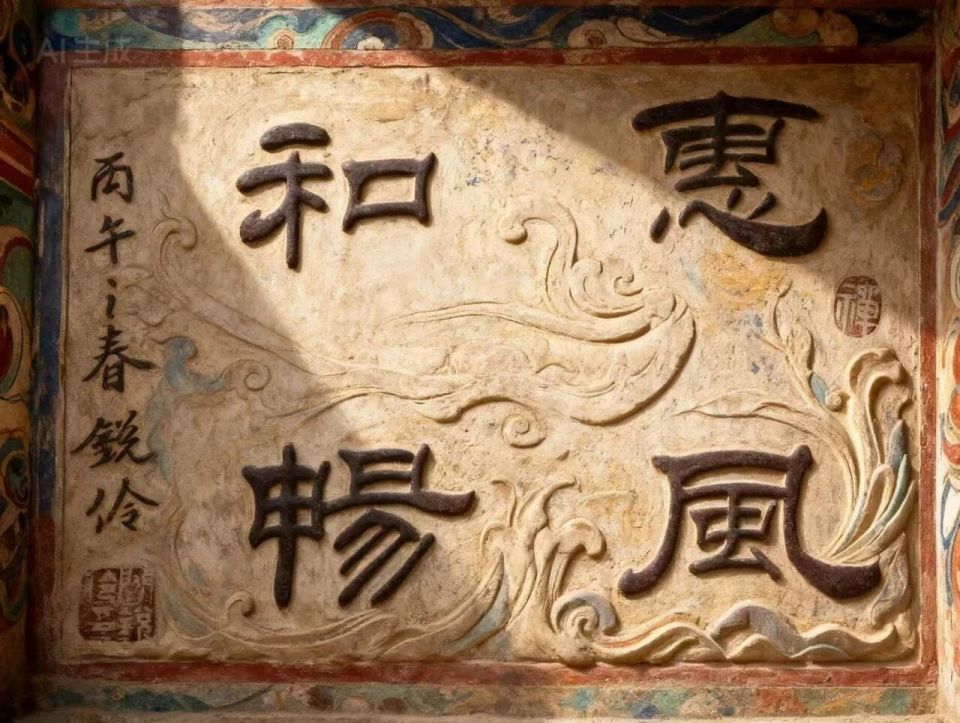 惠風
和暢
丙午之春銳伶
禅
AI生成